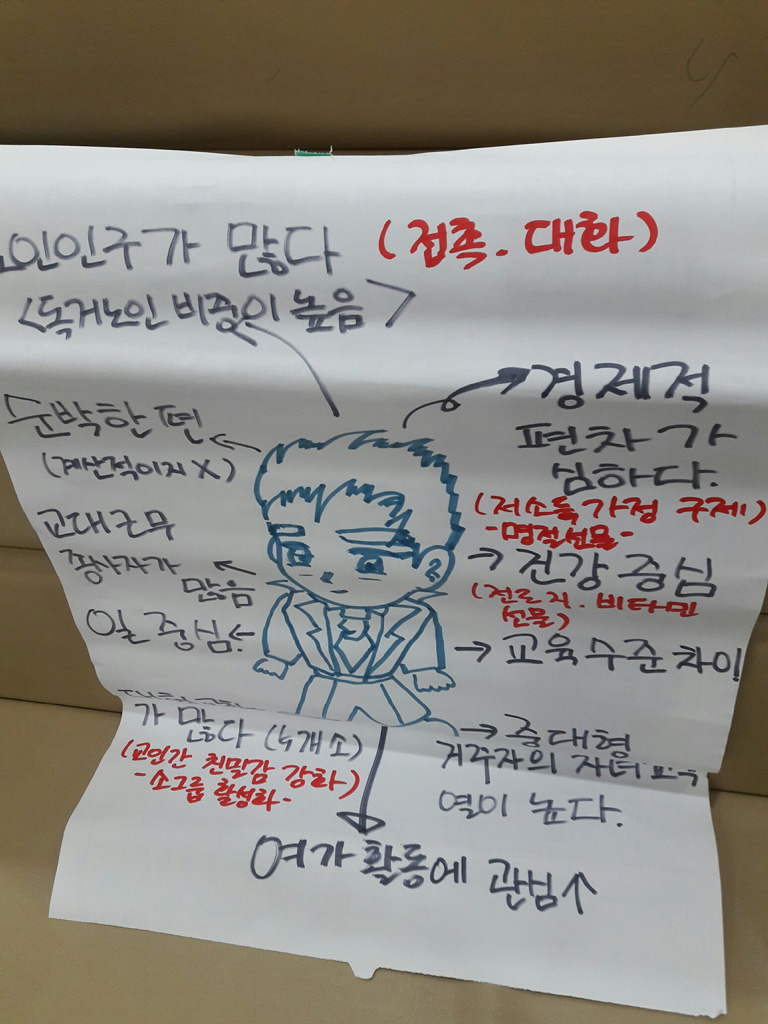 노인인구가 많다 (접촉.대화)
<독거노인 비중이 높음>
순박한 편
(계산적이지 X)
교대근무
종사자가
많음
일 중심
경제적
편차가
심하다.
(저소득 가정 구제)
-명절선물-
건강 중심
(전도지.비타민
선물)
교육수준 차이
가 많다 (4개소)
(교인간 친밀감 강화)
-소그룹 활성화-
중대형
거주자의 자녀
열이 높다.
여가 활동에 관심↑